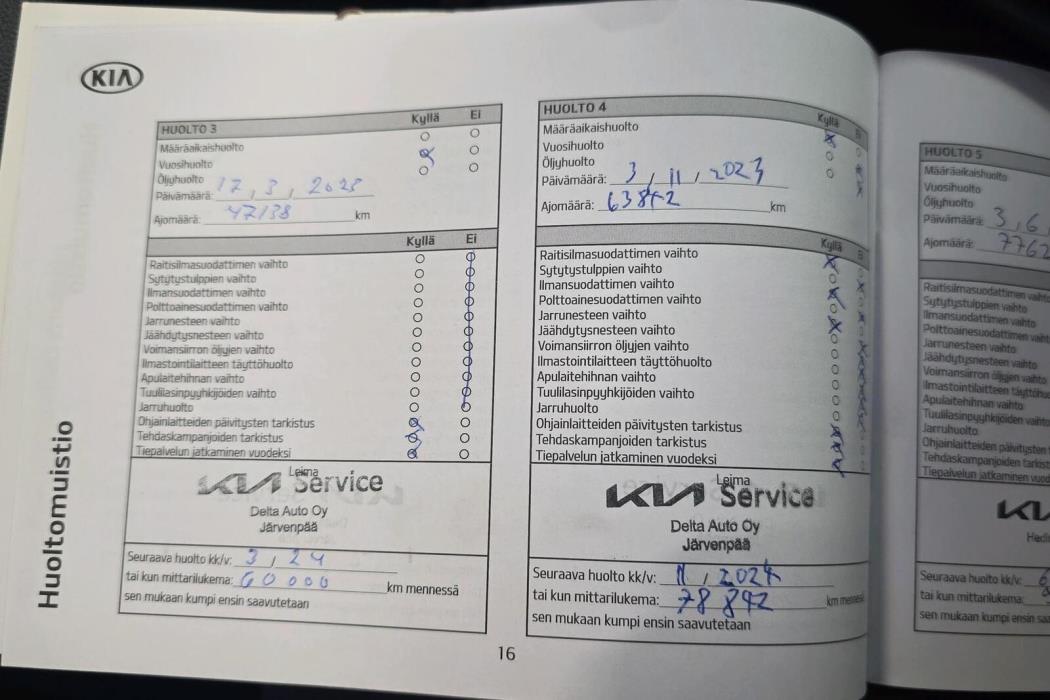 KIA
Huoltomuistio
HUOLTO 3 Kyllä Ei
Määräaikaishuolto
Vuosihuolto
Öljyhuolto
Päivämäärä: 17, 3, 2023
Ajomäärä: 47138 km
Kyllä Ei
Raitisilmasuodattimen vaihto
Sytytystulppien vaihto
Ilmansuodattimen vaihto
Polttoainesuodattimen vaihto
Jarrunesteen vaihto
Jäähdytysnesteen vaihto
Voimansiirron öljyjen vaihto
Ilmastointilaitteen täyttöhuolto
Apulaitehihnan vaihto
Tuulilasinpyyhkijöiden vaihto
Jarruhuolto
Ohjainlaitteiden päivitysten tarkistus
Tehdaskampanjoiden tarkistus
Tiepalvelun jatkaminen vuodeksi
Leima
KIA Service
Delta Auto Oy
Järvenpää
Seuraava huolto kk/v: 3, 24
tai kun mittarilukema: 60 000 km mennessä
sen mukaan kumpi ensin saavutetaan
HUOLTO 4 Kyllä
Määräaikaishuolto
Vuosihuolto
Öljyhuolto
Päivämäärä: 3, 11, 2023
Ajomäärä: 63842 km
Kyllä
Raitisilmasuodattimen vaihto
Sytytystulppien vaihto
Ilmansuodattimen vaihto
Polttoainesuodattimen vaihto
Jarrunesteen vaihto
Jäähdytysnesteen vaihto
Voimansiirron öljyjen vaihto
Ilmastointilaitteen täyttöhuolto
Apulaitehihnan vaihto
Tuulilasinpyyhkijöiden vaihto
Jarruhuolto
Ohjainlaitteiden päivitysten tarkistus
Tehdaskampanjoiden tarkistus
Tiepalvelun jatkaminen vuodeksi
Leima
KIA Service
Delta Auto Oy
Järvenpää
Seuraava huolto kk/v: 11, 2024
tai kun mittarilukema: 78 842 km mennessä
sen mukaan kumpi ensin saavutetaan
16
HUOLTO 5
Määräaikaishuolto
Vuosihuolto
Öljyhuolto
Päivämäärä: 3, 6,
Ajomäärä: 7762
Raitisilmasuodattimen vaihto
Sytytystulppien vaihto
Ilmansuodattimen vaihto
Polttoainesuodattimen vaiht
Jarrunesteen vaihto
Jäähdytysnesteen vaihto
Voimansiirron öljyjen vaihto
Ilmastointilaitteen täyttöhu
Apulaitehihnan vaihto
Tuulilasinpyyhkijöiden vaiht
Jarruhuolto
Ohjainlaitteiden päivitysten
Tehdaskampanjoiden tarkist
Tiepalvelun jatkaminen vuod
KIA
Hedin
Seuraava huolto kk/v: 6
tai kun mittarilukema:
sen mukaan kumpi ensin saa